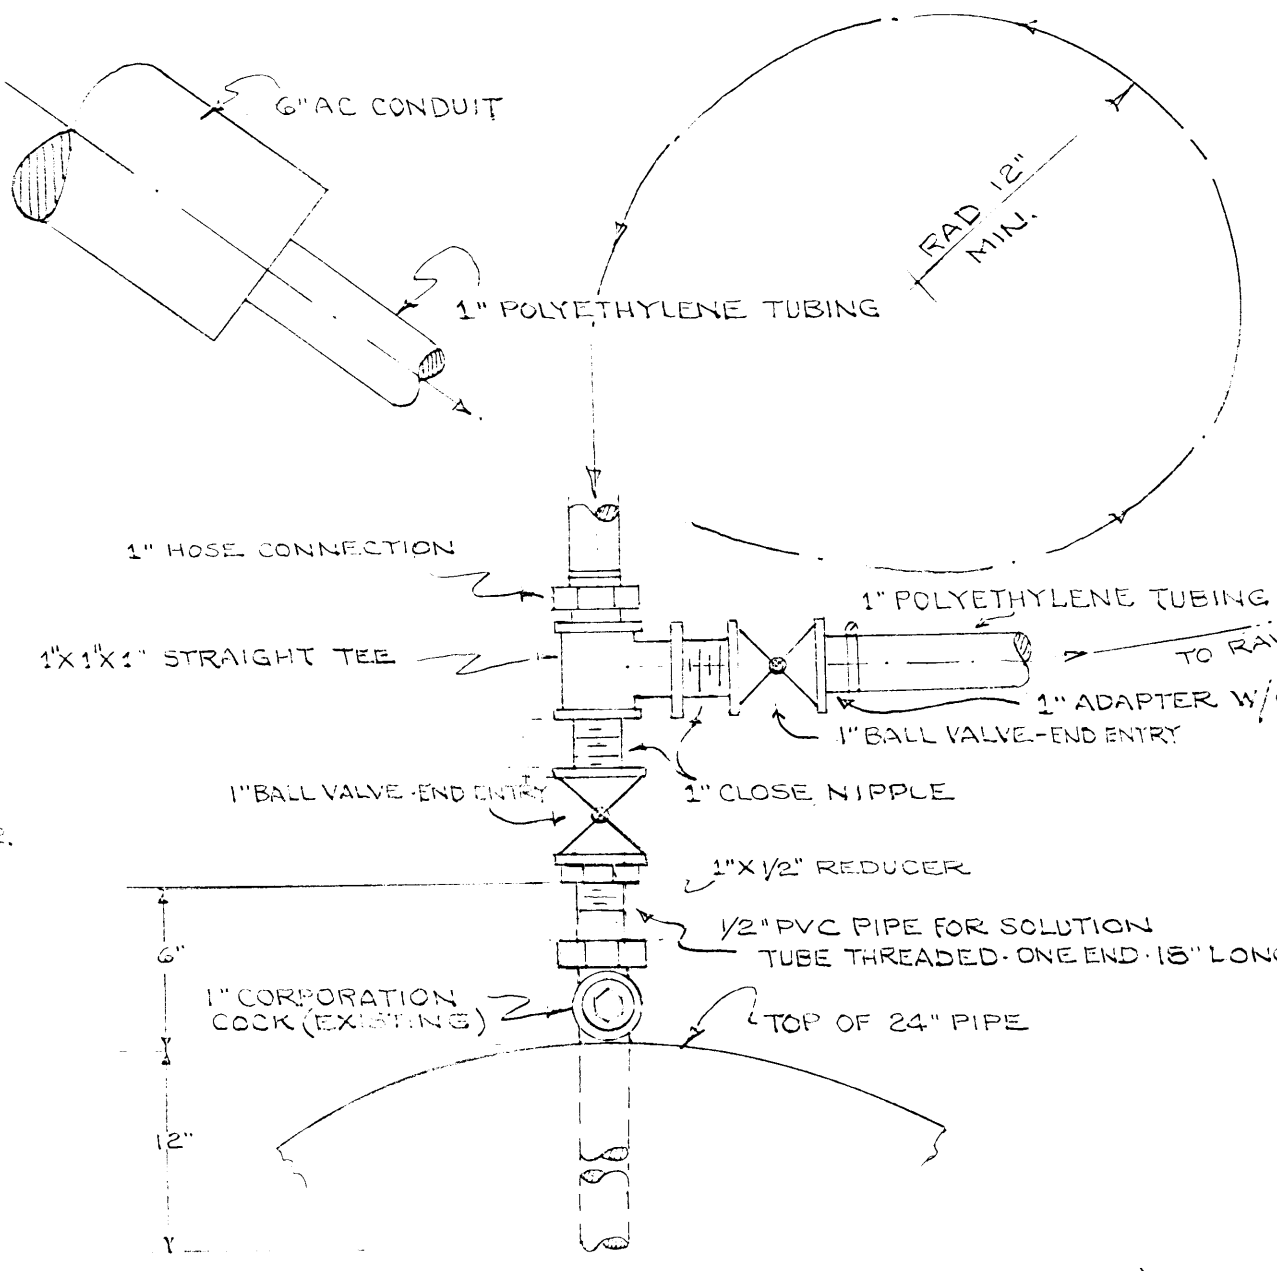 6" AC CONDUIT
RAD 12"
MIN.
1" POLYETHYLENE TUBING
1" HOSE CONNECTION
1" POLYETHYLENE TUBING
1"X 1"X 1" STRAIGHT TEE
TO
1" ADAPTER
1" BALL VALVE-END ENTRY
1" BALL VALVE-END ENTRY
1" CLOSE NIPPLE
1" X 1/2" REDUCER
1/2" PVC PIPE FOR SOLUTION
TUBE THREADED. ONE END. 18" LONG
6"
1" CORPORATION
COCK (EXISTING)
TOP OF 24" PIPE
12"